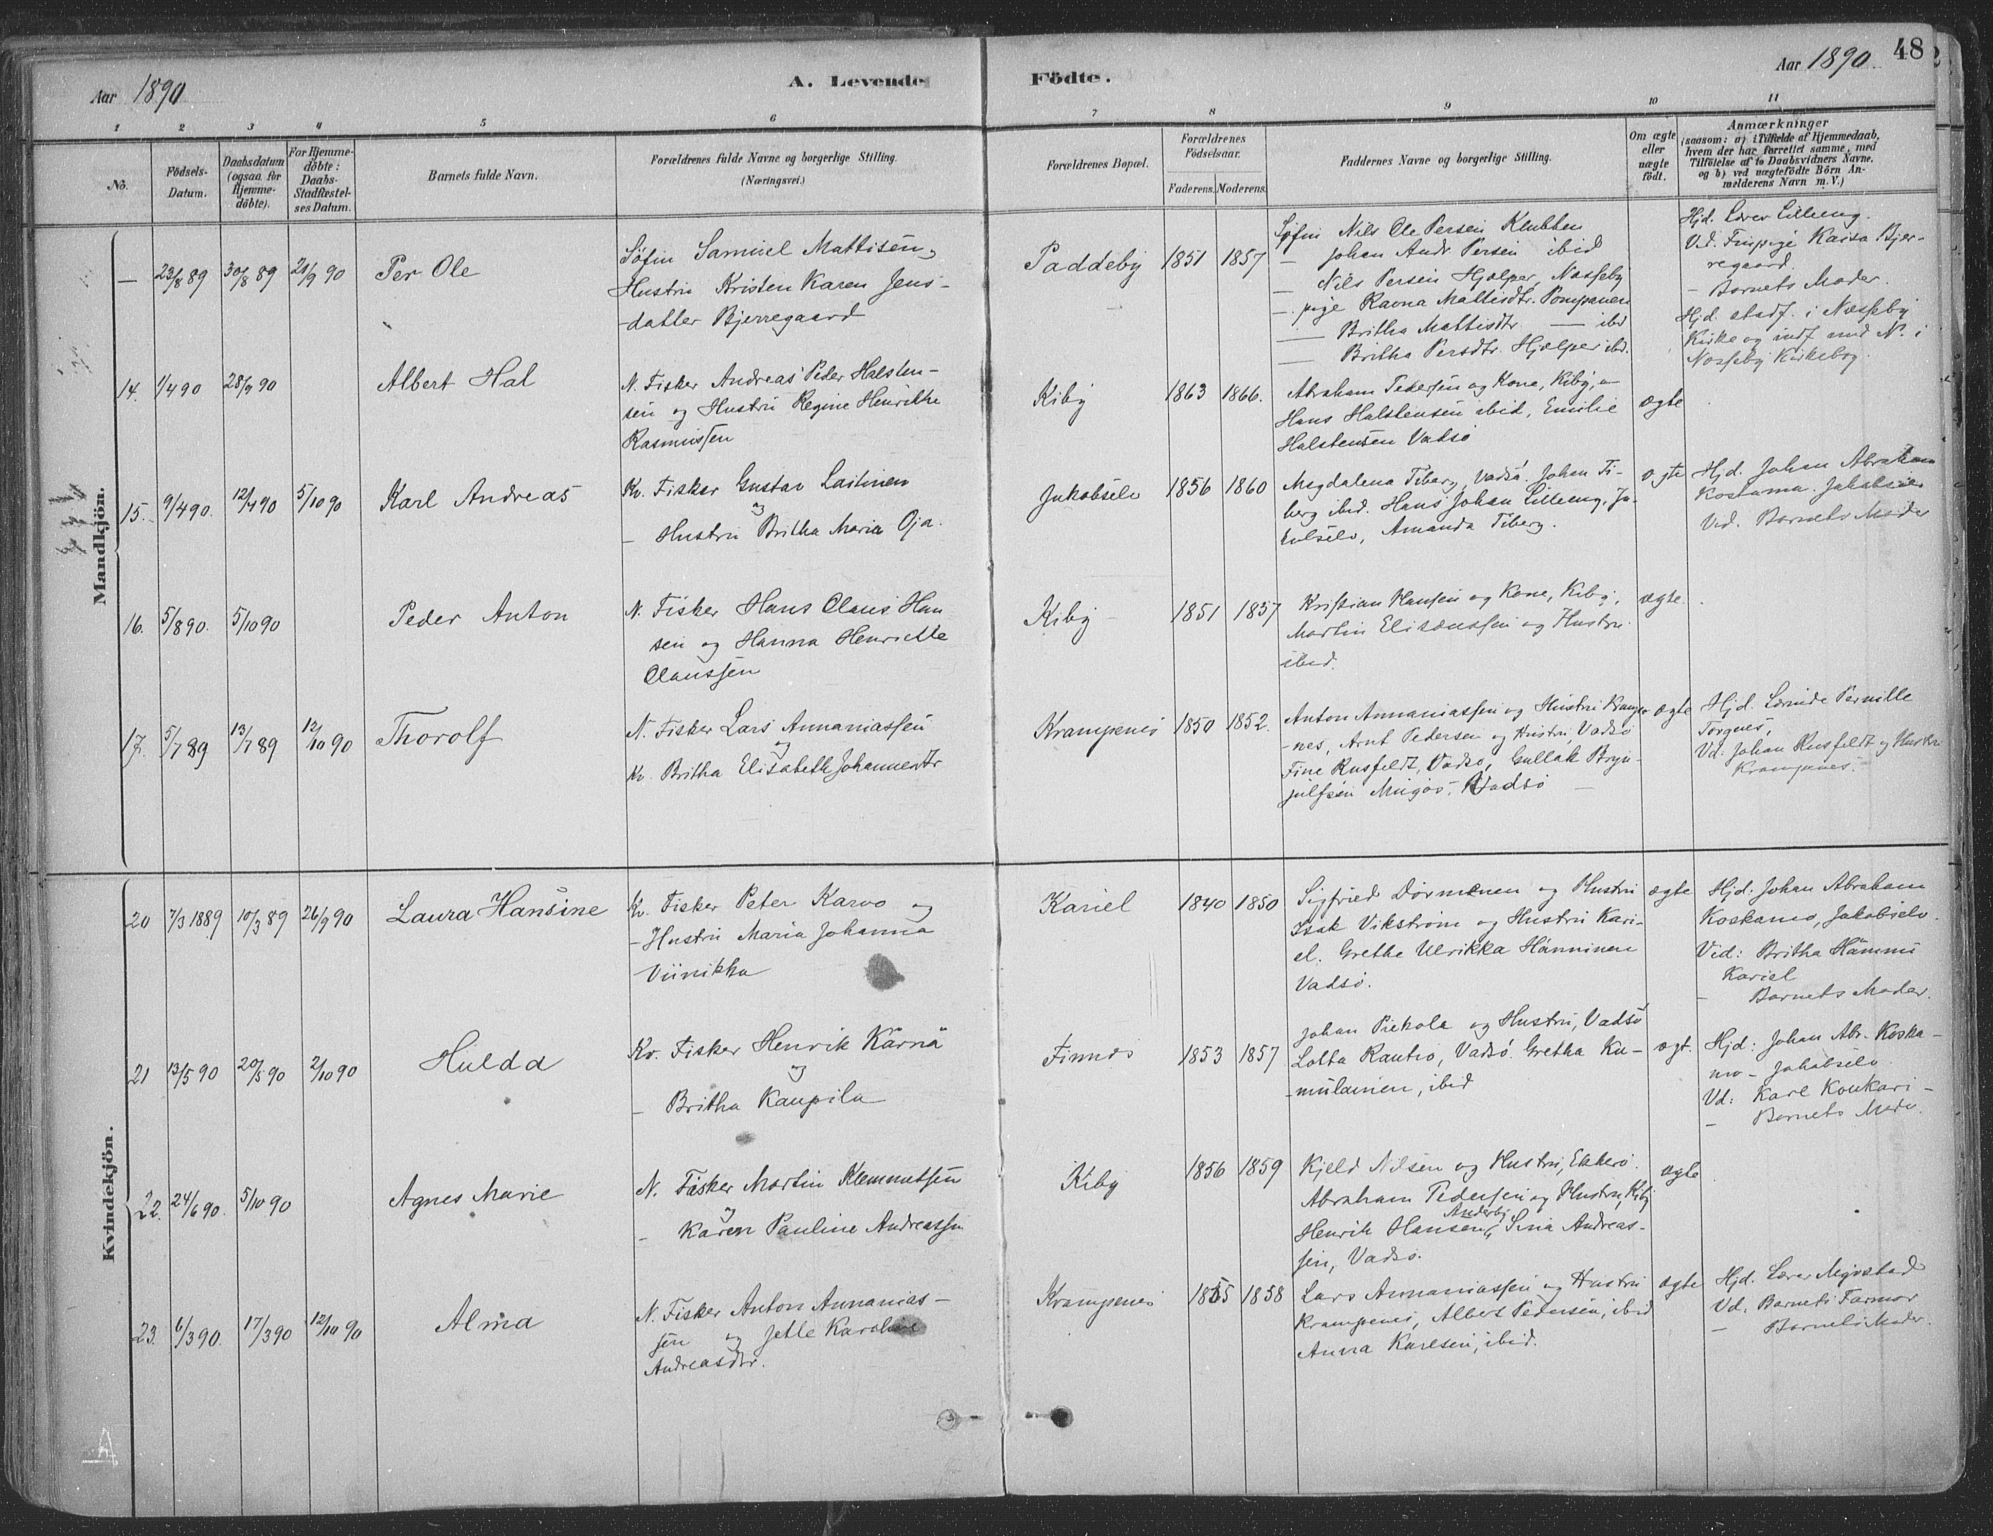 Aar 1890
A. Levende Födte.
Aar 1890
48
1 2 3 4 5 6 7 8 9 10 11
No.
Födsels-Datum.
Daabsdatum (ogsaa for Hjemmedöbte).
For Hjemmedöbte: Daabs-Stadfæstelses Datum.
Barnets fulde Navn.
Forældrenes fulde Navne og borgerlige Stilling.
(Næringsvei.)
Forældrenes Bopæl.
Forældrenes Födselsaar.
Faderens. Moderens.
Faddernes Navne og borgerlige Stilling.
Om ægte eller uægte födt.
Anmærkninger
(saasom: a) i Tilfælde af Hjemmedaab,
hvem der har forrettet samme, med
Tilföielse af to Daabsvidners Navne,
og b) ved uægtefödte Börn An-
melderens Navn m. V.)
Mandkjön.
— 23/8 89 30/8 89 21/9 90 Per Ole
Søfin Samuel Mattisen,
Hustru Kristen Karen Jens-
datter Bjerregaard
Paddeby 1851 1857
Søfin Nils Ole Persen Klubben
— Johan Andr. Persen ibid
— Nils Persen Hjælper, Næsseby
— pige Ravna Mattisdtr. Pompanen
— Britha Mattisdtr. — ibd
— Britha Persdtr. Hjælper ibd.
Hjd. Lærer Lilleng.
Vid. Finpige Kaisa Bjer-
regaard.
- Barnets Moder.
Hjd. stadf. i Næsseby
Kirke og indf. med N. i
Næsseby Kirkebog.
14. 1/4 90 28/9 90 Albert Hal
N. Fisker Andreas Peder Halsten-
sen og Hustru Regine Henrikke
Rasmussen
Kiby 1863 1866.
Abraham Pedersen og Kone, Kiby,
Hans Halstensen ibid, Emilie
Halstensen Vadsö
ægte
15. 9/4 90. 12/4 90 5/10 90 Karl Andreas
Kv. Fisker Gustav Laitinen
og
— Hustru Britha Maria Oja.
Jakobselv 1856 1860
Magdalena Tiberg, Vadsö, Johan Ti-
berg ibid. Hans Johan Lilleng, Ja-
kobselv, Amanda Tiberg.
ægte
Hjd. Johan Abraham
Koskamo. Jakobselv
Vid. Barnets Moder
16. 5/8 90. 5/10 90 Peder Anton
N. Fisker Hans Claus Han
sen og Hanna Henriette
Claussen
Kiby 1851 1857
Kristian Hansen og Kone, Kiby,
Martin Elisæussen og Hustru
ibid.
ægte.
17. 5/7 89 13/7 89 12/10 90 Thorolf
N. Fisker Lars Annaniassen
og
Kv. Britha Elisabeth Johannesdtr
Krampenes 1850 1852.
Anton Annaniassen og Hustru Krampe-
nes, Arnt Pedersen og Hustru Vadsö
Fine Rusfeldt, Vadsö, Gullak Bryn-
julfsen Vadsö
ægte
Hjd. Lærinde Pernille
Torgnes,
Vd: Johan Rusfeldt og Hustru
Krampenes.
Kvindekjön.
20 7/3 1889 10/3 89 26/9 90 Laura Hansine
Kv. Fisker Peter Karvo og
- Hustru Maria Johanna
Viinikka
Kariel 1840 1850
Sigfried Dörmenen og Hustru
Isak Vikström og Hustru Kari-
el. Grethe Ulrikka Hänninen
Vadsö.
ægte
Hjd: Johan Abraham
Koskamo, Jakobselv.
Vid: Britha Hämmi
Kariel
— Barnets Moder.
21 13/5 90 20/5 90 2/10 90 Hulda
Kv. Fisker Henrik Kärnä
og
— Britha Kaupila
Finnes 1853 1857
Johan Piekola og Hustru, Vadsö
Lotta Rantio, Vadsö. Gretha Ku-
mulainen, ibid
ægt.
Hjd: Johan Abr. Koska-
mo - Jakobselv
Vd: Karl Koukari -
- Barnets Moder.
22. 24/6 90. 5/10 90 Agnes Marie
N. Fisker Martin Klemmetsen
og
— Karen Pauline Andreassen
Kiby 1856 1859
Kjeld Nilsen og Hustru, Ekkerö.
Abraham Pedersen og Hustru, Kiby
Henrik Hansen, Anderby, Sina Andreas-
sen, Vadsö.
ægte
23. 6/3 90. 17/3 90 12/10 90 Alma
N. Fisker Anton Annanias-
sen og Jette Karoline
Andreasdtr.
Krampenes 1855 1858
Lars Annaniassen og Hustru
Krampenes, Albert Pedersen, ibid
Anna Karlsen, ibid.
ægte
Hjd. Lærer Migostad
Vd. Barnets Farmor
— Barnets Moder.